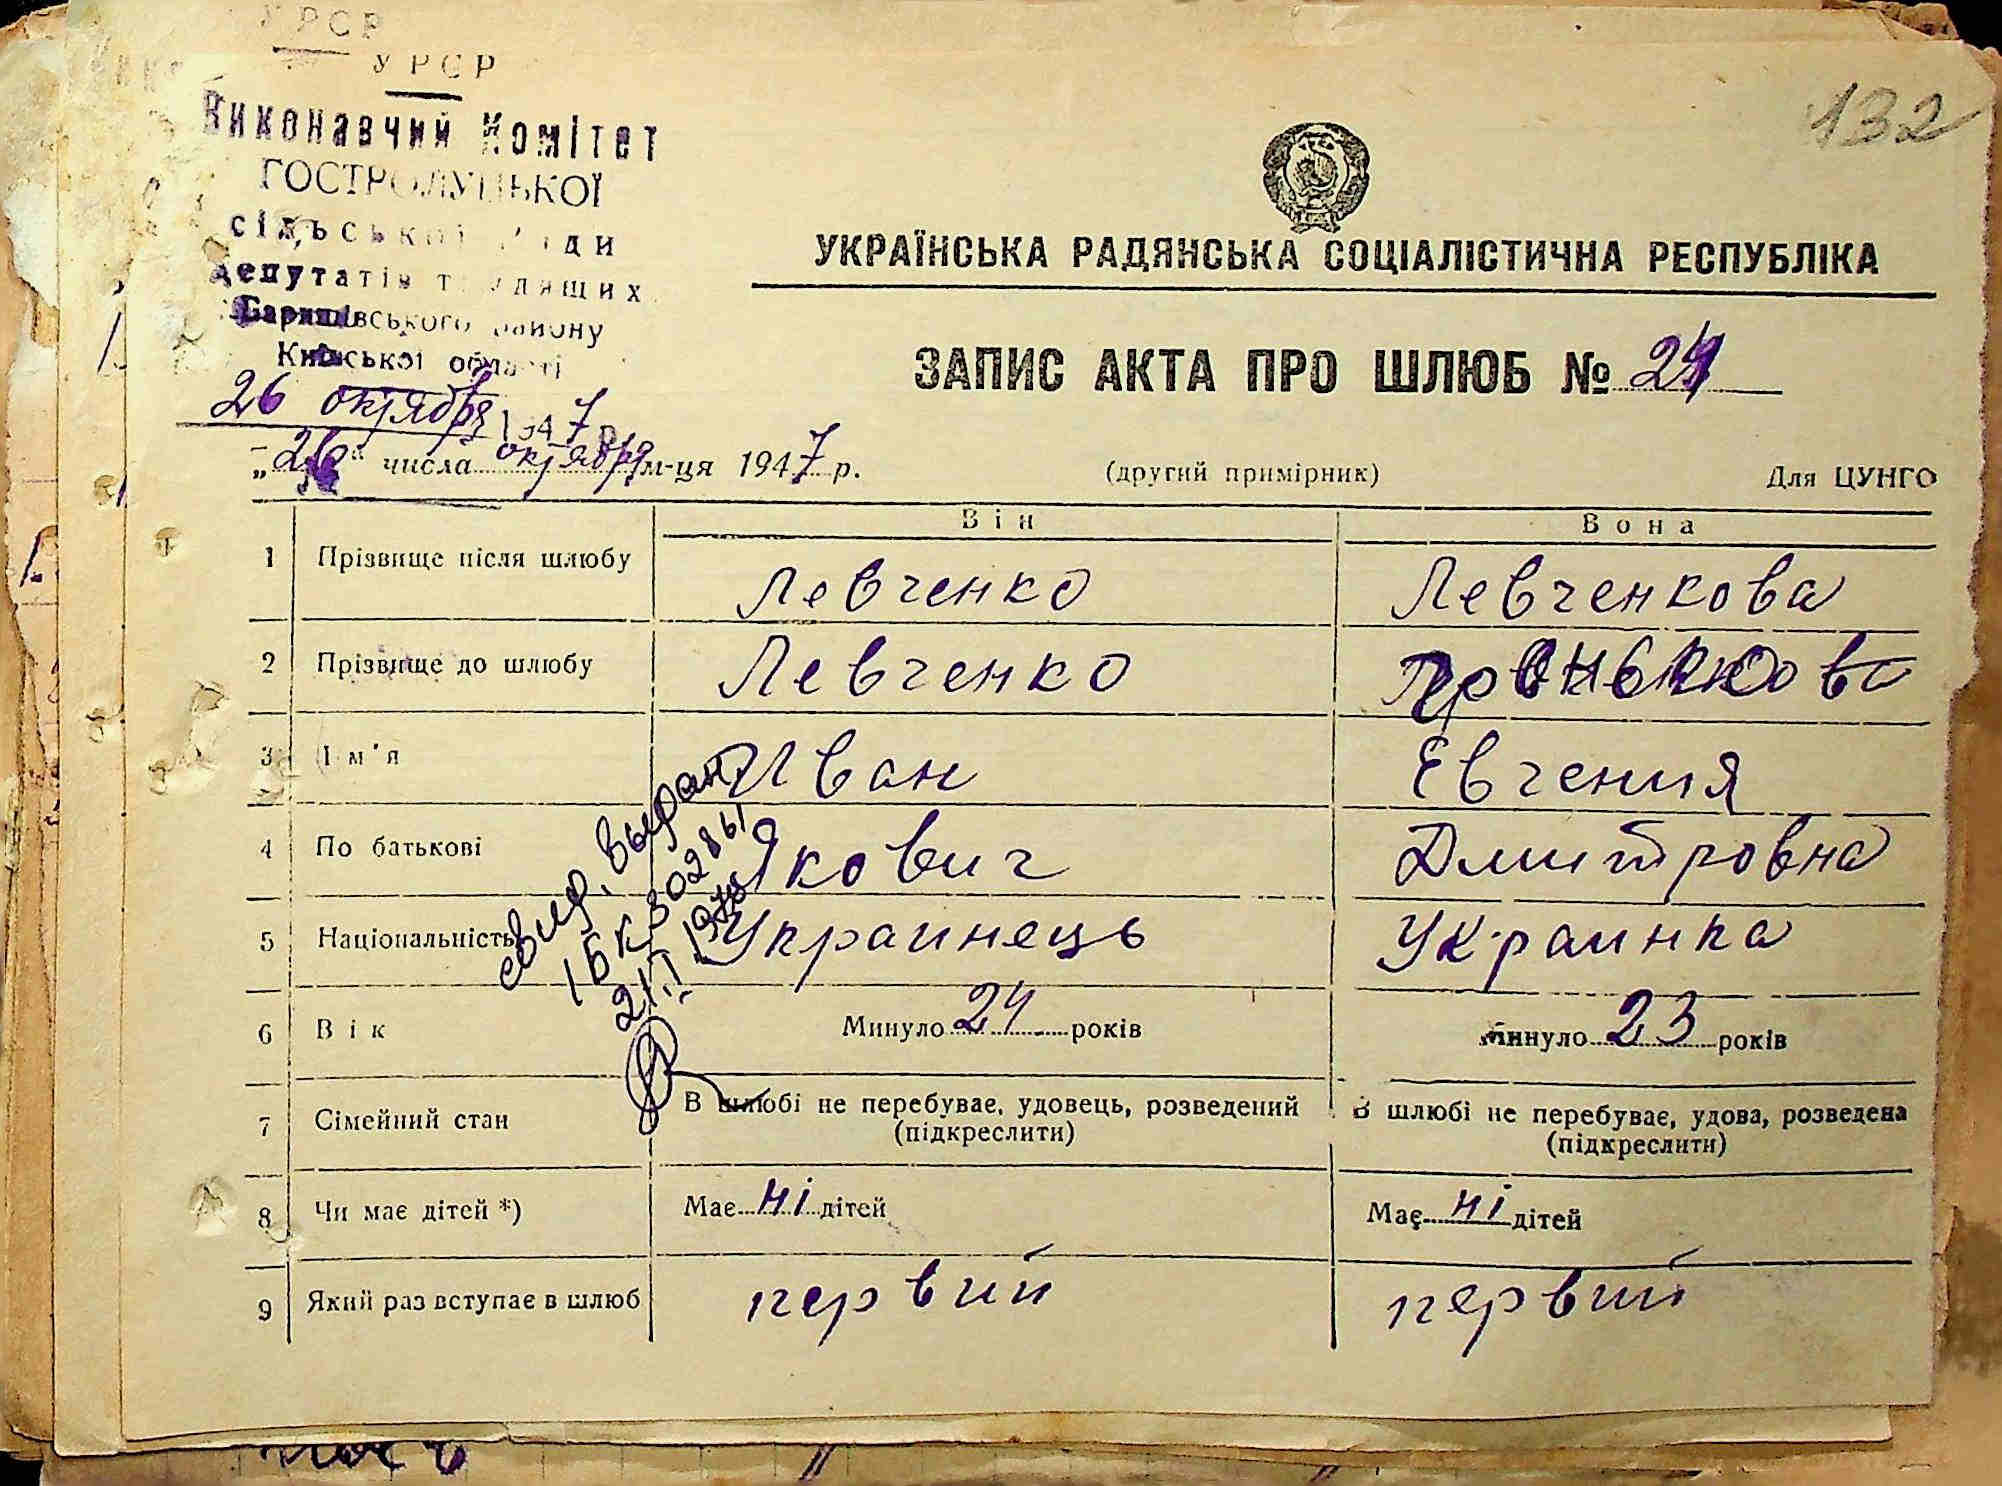 УРСР
УРСР
132
Виконавчий Комітет
ГОСТРОЛУЦЬКОЇ
сільської Ради
депутатів трудящих
Баришівського району
Київської області
26 октября 1947 р.
УКРАЇНСЬКА РАДЯНСЬКА СОЦІАЛІСТИЧНА РЕСПУБЛІКА
ЗАПИС АКТА ПРО ШЛЮБ № 24
„26“ числа октября м-ця 1947 р. (другий примірник) Для ЦУНГО
Він Вона
1 Прізвище після шлюбу Левченко Левченкова
2 Прізвище до шлюбу Левченко
3 Ім'я Иван Евгения
4 По батькові Якович Дмитровна
5 Національність Украинець Украинка
6 Вік Минуло 24 років Минуло 23 років
7 Сімейний стан В шлюбі не перебуває, удовець, розведений В шлюбі не перебуває, удова, розведена
(підкреслити) (підкреслити)
8 Чи має дітей *) Має ні дітей Має ні дітей
9 Який раз вступає в шлюб первий первий
свид. выдан
ІБК 302861
21.I.1978